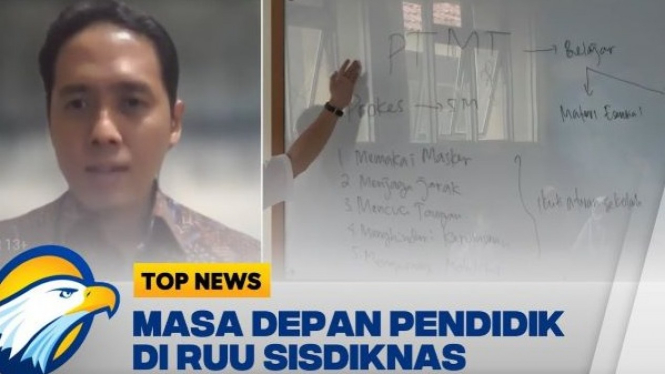 PTMT → Belajar
Prokes → 5M
1 Memakai Masker
2 Menjaga Jarak
3 Mencuci Tangan
4 Menghindari Kerumunan
ikuti aturan sekolah
13+
TOP NEWS
MASA DEPAN PENDIDIK
DI RUU SISDIKNAS